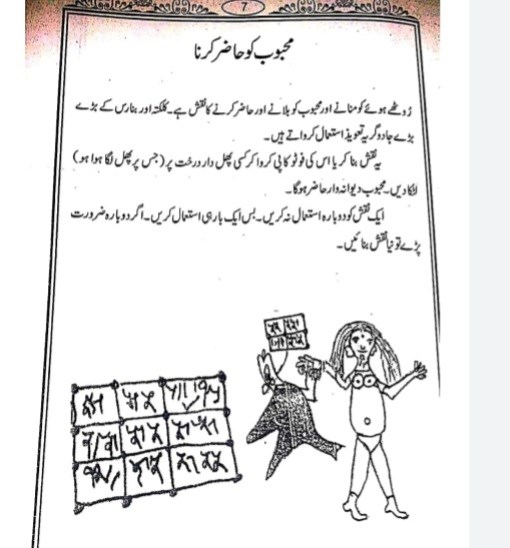 7
محبوب کو حاضر کرنا
رُوٹھے ہوئے کو منانے اور محبوب کو بلانے اور حاضر کرنے کا نقش ہے۔ کلکتہ اور بنارس کے بڑے
بڑے جادوگر یہ تعویذ استعمال کرواتے ہیں۔
یہ نقش بنا کر یا اس کی فوٹو کاپی کروا کر کسی پھل دار درخت پر (جس پر پھل لگا ہوا ہو)
لٹکا دیں۔ محبوب دیوانہ وار حاضر ہوگا۔
ایک نقش کو دوبارہ استعمال نہ کریں۔ بس ایک بار ہی استعمال کریں۔ اگر دوبارہ ضرورت
پڑے تو نیا نقش بنائیں۔